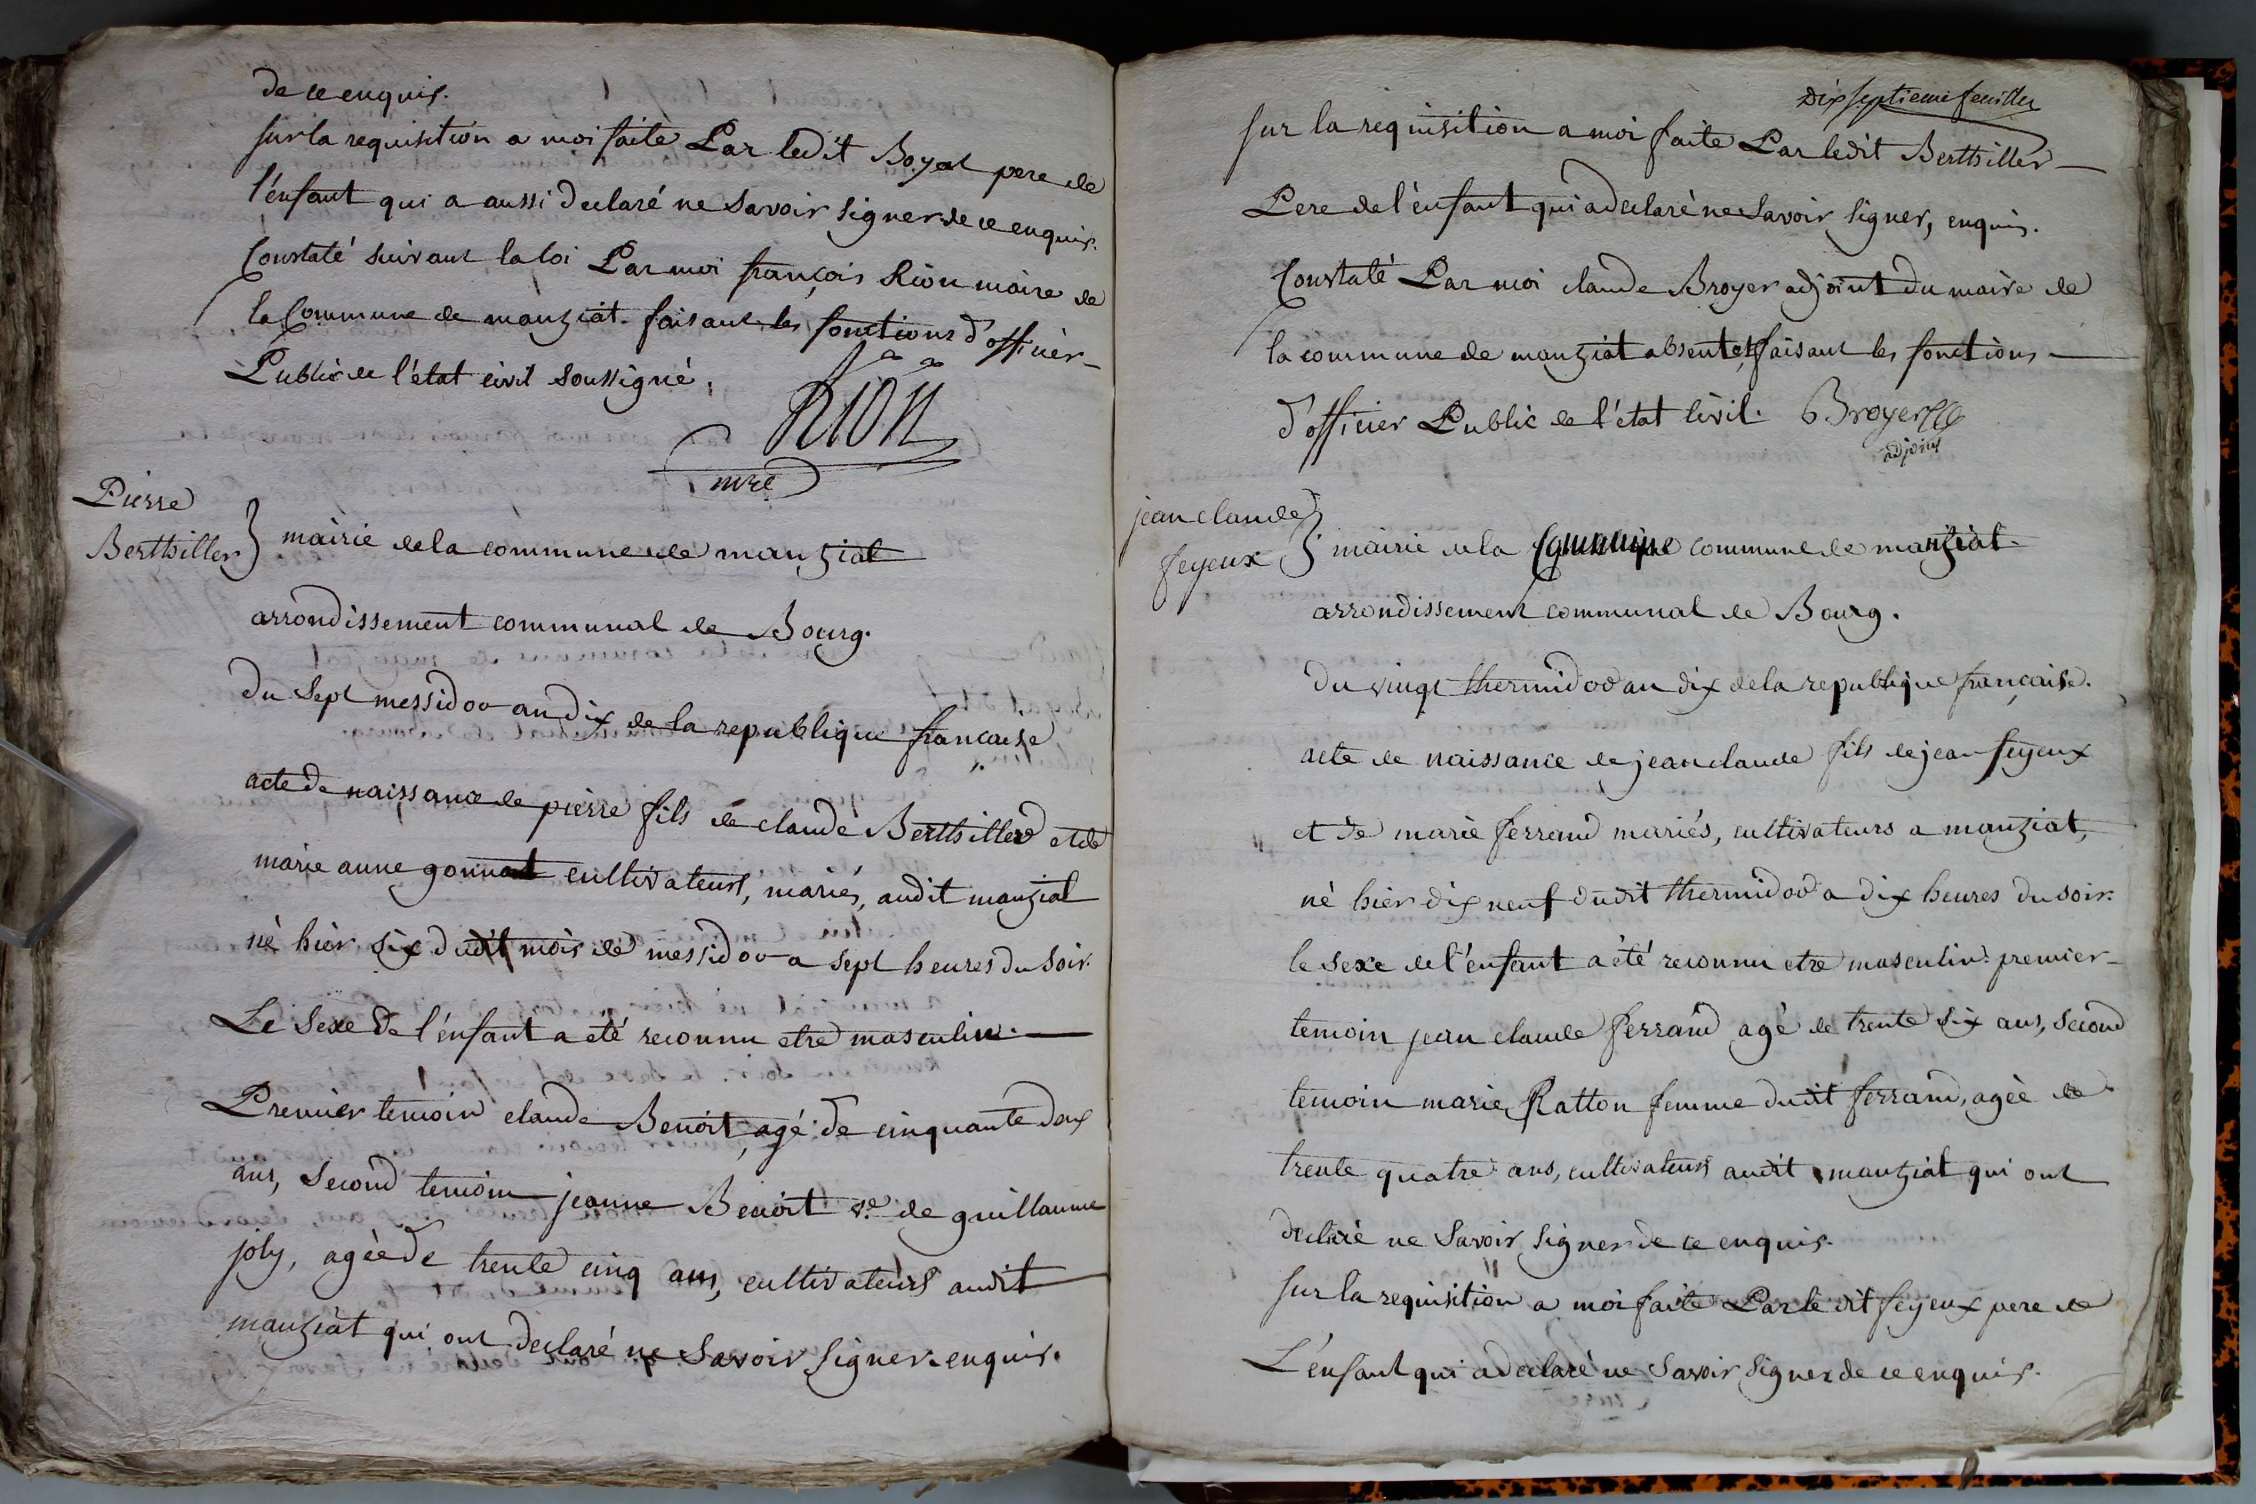 de ce enquis.
sur la requisition a moi faite Par ledit Boyat pere de
l'énfant qui a aussi declaré ne Savoir Signer de ce enquis.
Constaté suivant la loi Par moi françois Rion maire de
la Commune de manziat faisant les fonctions d'officier
Public de l'état civil soussigné.
Rion
mre
Pierre
Berthiller
mairie de la commune de manziat
arrondissement communal de Bourg.
du Sept messidor an dix de la republique francaise
acte de naissance de pierre fils de claude Berthiller et de
marie anne gonnat cultivateurs, mariés, audit manziat
né hier six dudit mois de messidor a sept heures du Soir.
Le Sexe de l'énfant a été reconnu etre masculin.
Premier temoin claude Benoit, agé de cinquante deux
ans, Second temoin jeanne Benoit ve. de guillaume
joly, agée de trente cinq ans, cultivateurs audit
manziat qui ont declaré ne Savoir Signer enquis.
Dix septieme feuillet
sur la requisition a moi faite Par ledit Berthiller
Pere de l'énfant qui a declaré ne Savoir Signer, enquis.
Constaté Par moi claude Broyer adjoint du maire de
la commune de manziat absent et faisant les fonctions
d'officier Public de l'état Civil. Broyer
adjoint
jean claude
feyeux
mairie de la commune de manziat
arrondissement communal de Bourg.
du vingt thermidor an dix de la republique française.
acte de naissance de jean claude fils de jean feyeux
et de marie ferrand mariés, cultivateurs a manziat,
né hier dix neuf dudit thermidor a dix heures du soir.
le sexe de l'énfant a été reconnu etre masculin. premier
temoin jean claude ferrand agé de trente six ans, second
temoin marie Ratton femme dudit ferrand, agée de
trente quatre ans, cultivateurs audit manziat qui ont
declaré ne Savoir Signer de ce enquis.
sur la requisition a moi faite Par le dit feyeux pere de
L'énfant qui a declaré ne Savoir Signer de ce enquis.